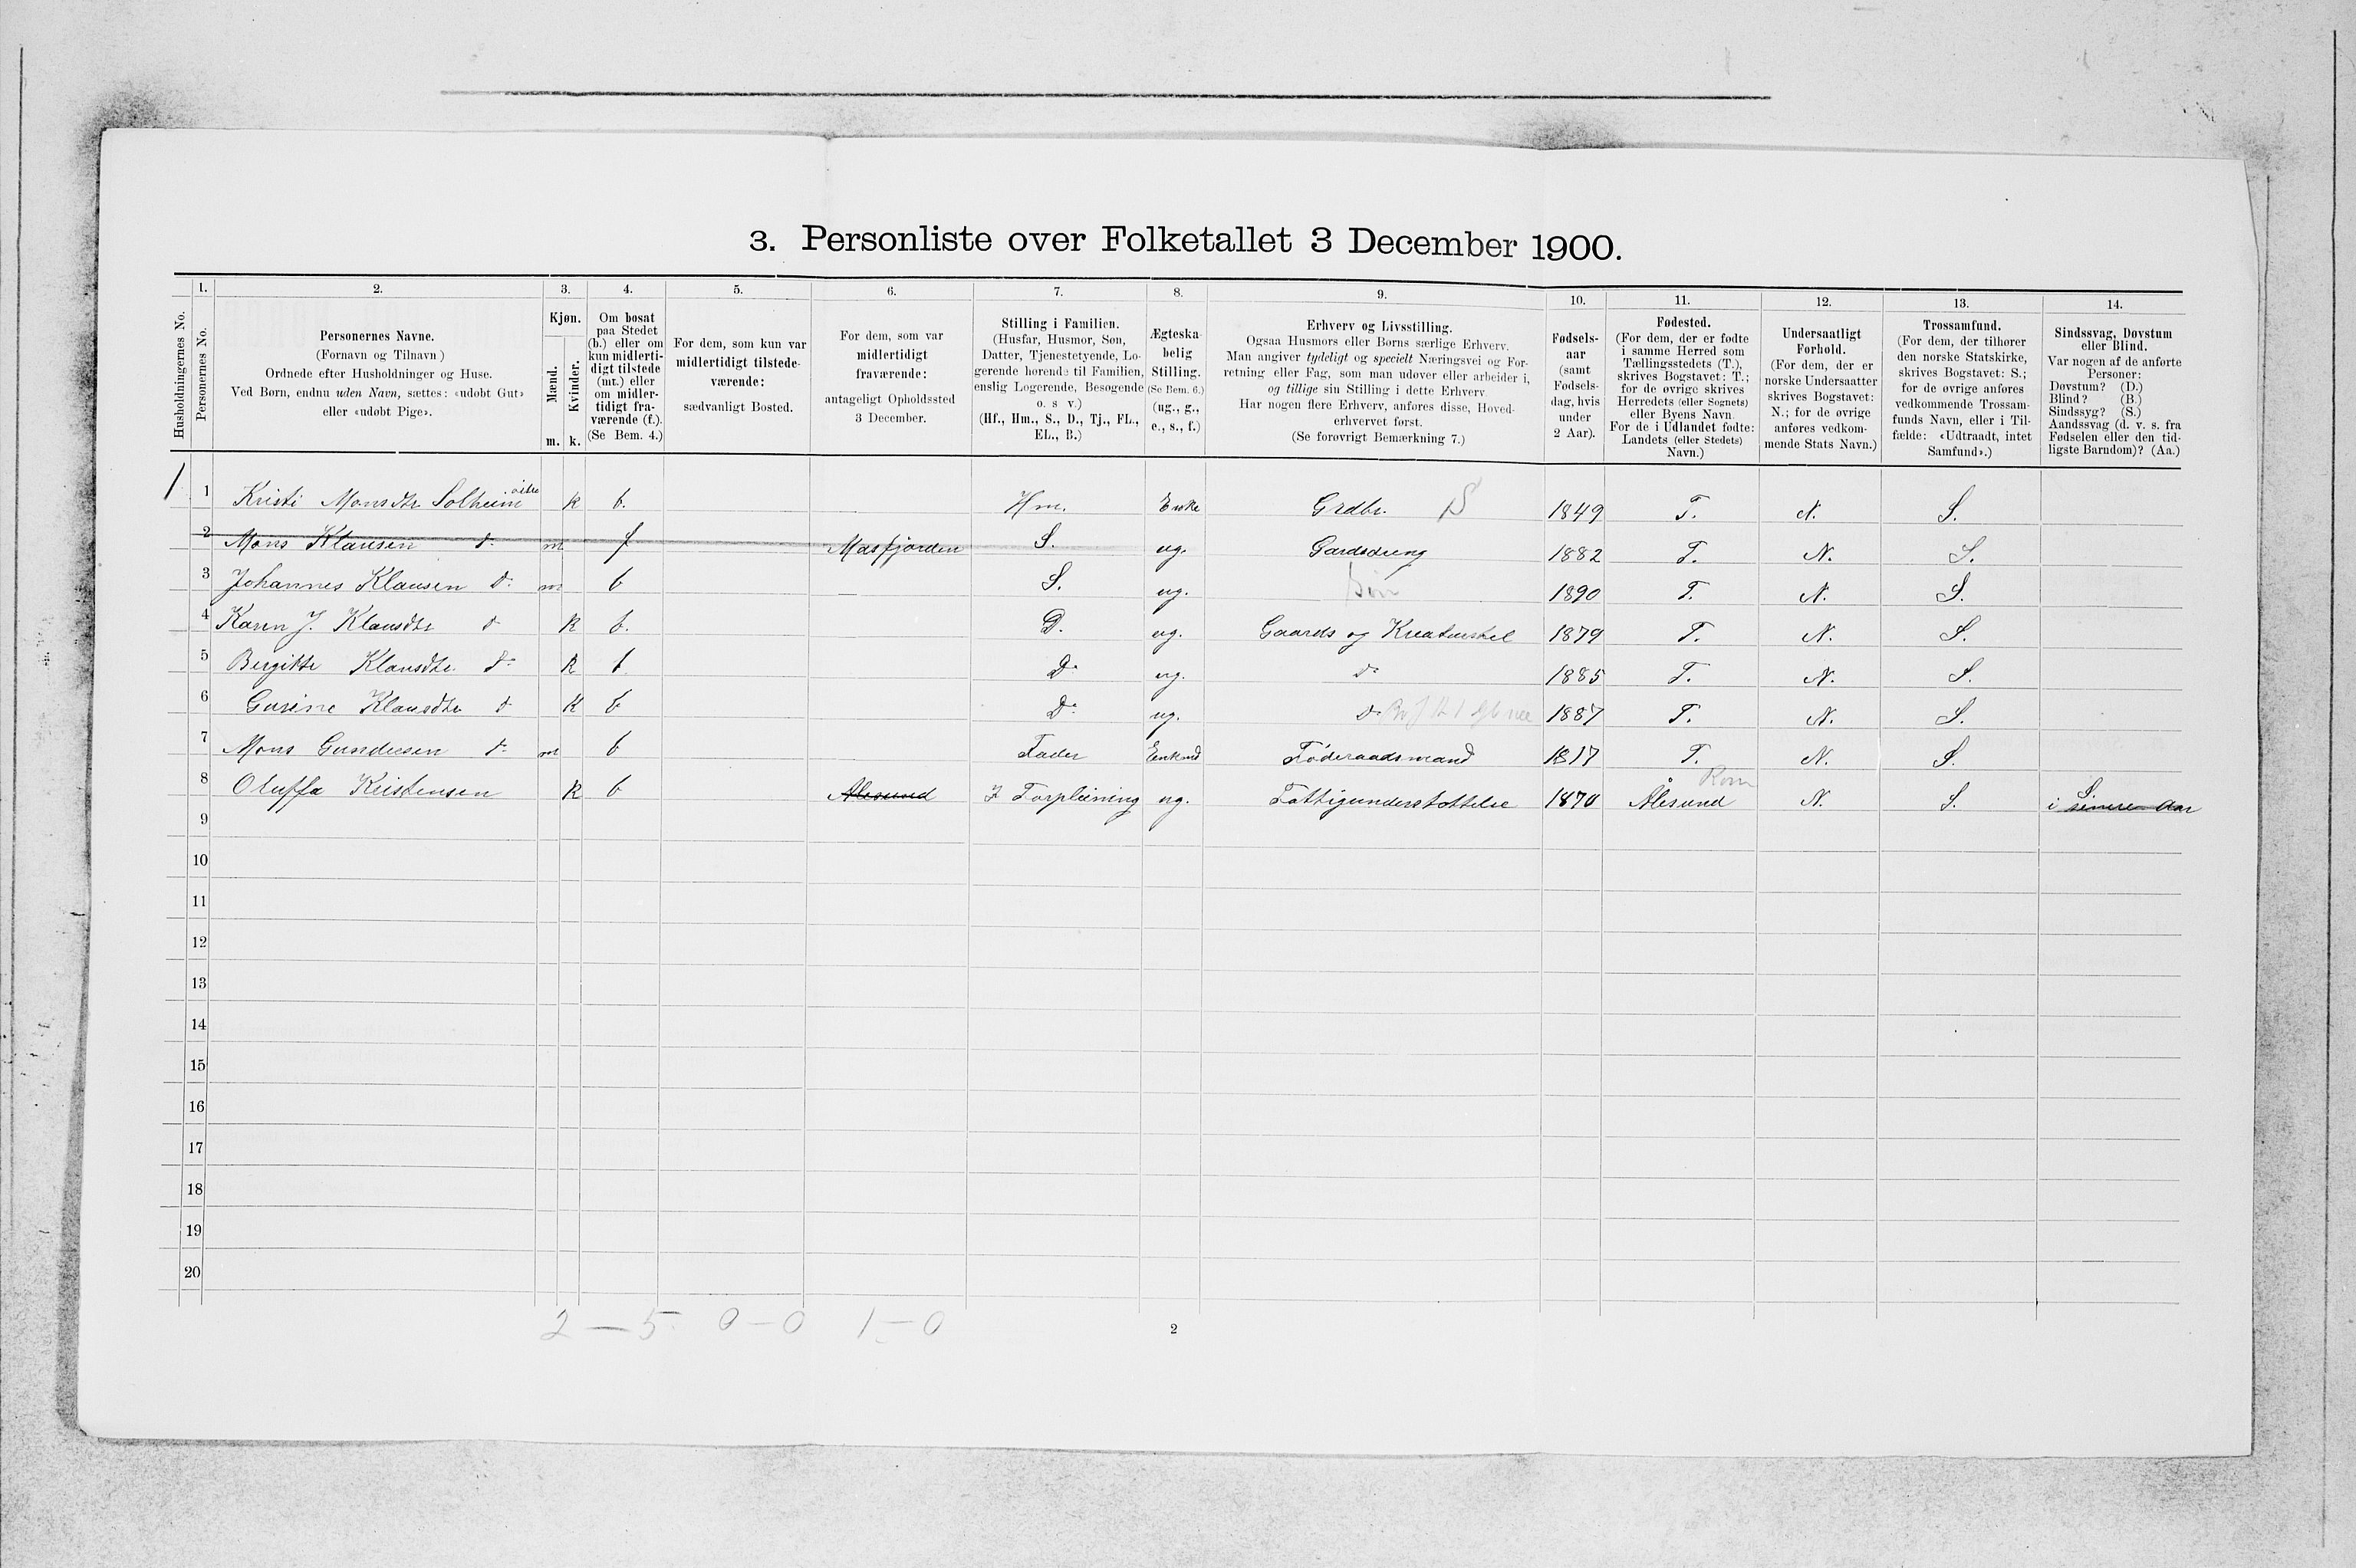 3. Personliste over Folketallet 3 December 1900.
1. 2. 3. 4. 5. 6. 7. 8. 9. 10. 11. 12. 13. 14.
Husholdningernes No.
Personernes No.
Personernes Navne.
(Fornavn og Tilnavn)
Ordnede efter Husholdninger og Huse.
Ved Børn, endnu uden Navn, sættes: «udøbt Gut»
eller «udøbt Pige».
Kjøn.
Mænd.
Kvinder.
m. k.
Om bosat
paa Stedet
(b.) eller om
kun midlerti-
digt tilstede
(mt.) eller
om midler-
tidigt fra-
værende (f.).
(Se Bem. 4.)
For dem, som kun var
midlertidigt tilstede-
værende:
sædvanligt Bosted.
For dem, som var
midlertidigt
fraværende:
antageligt Opholdssted
3 December.
Stilling i Familien.
(Husfar, Husmor, Søn,
Datter, Tjenestetyende, Lo-
gerende hørende til Familien,
enslig Logerende, Besøgende
o. s v.)
(Hf., Hm., S., D., Tj., FL.,
EL., B.)
Ægteska-
belig
Stilling.
(Se Bem. 6.)
(ug., g.,
e., s., f.)
Erhverv og Livsstilling.
Ogsaa Husmors eller Børns særlige Erhverv.
Man angiver tydeligt og specielt Næringsvei og For-
retning eller Fag, som man udøver eller arbeider i,
og tillige sin Stilling i dette Erhverv.
Har nogen flere Erhverv, anføres disse, Hoved-
erhvervet først.
(Se forøvrigt Bemærkning 7.)
Fødsels-
aar
(samt
Fødsels-
dag, hvis
under
2 Aar).
Fødested.
(For dem, der er fødte
i samme Herred som
Tællingsstedets (T.),
skrives Bogstavet: T.;
for de øvrige skrives
Herredets (eller Sognets)
eller Byens Navn.
For de i Udlandet fødte:
Landets (eller Stedets)
Navn.)
Undersaatligt
Forhold.
(For dem, der er
norske Undersaatter
skrives Bogstavet:
N.; for de øvrige
anføres vedkom-
mende Stats Navn.)
Trossamfund.
(For dem, der tilhører
den norske Statskirke,
skrives Bogstavet: S.;
for de øvrige anføres
vedkommende Trossam-
funds Navn, eller i Til-
fælde: «Udtraadt, intet
Samfund».)
Sindssvag, Døvstum
eller Blind.
Var nogen af de anførte
Personer:
Døvstum? (D.)
Blind? (B.)
Sindssyg? (S.)
Aandssvag (d. v. s. fra
Fødselen eller den tid-
ligste Barndom)? (Aa.)
1 1 Kristi Monsdtr Solheim k b. Hm. Enke Grdbr. S 1849 T. N. S.
2 Mons Klausen do m f Masfjorden S. ug. Gardsdreng 1882 T. N. S.
3 Johannes Klausen do m b S. ug. Søn 1890 T. N. S.
4 Karen J. Klausdtr do k b. D. ug. Gaards og Kreaturstel 1879 T. N. S.
5 Bergitte Klausdtr. do k b Do ug. do 1885 T. N. S.
6 Gurine Klausdtr do k b Do ug. do 1887 T. N. S.
7 Mons Gundersen do m b Fader Enkmd Føderaadsmand 1817 T. N. S.
8 Oluffa Kristensen k b Alesund I Forpleining ug. Fattigunderstøttelse 1870 Ålesund Rom N. S. S. i senere Aar
9
10
11
12
13
14
15
16
17
18
19
20
2 — 5 0 - 0 1 - 0
2